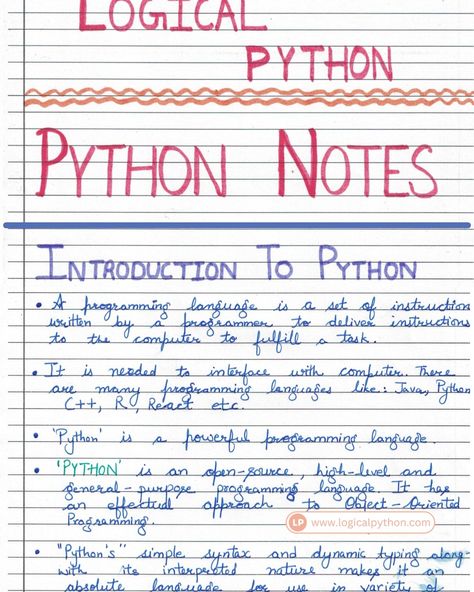 LOGICAL
PYTHON
PYTHON NOTES
INTRODUCTION TO PYTHON
• A programming language is a set of instruction
written by a programmer to deliver instructions
to the computer to fulfill a task.
• It is needed to interface with computer. There
are many programming languages like: Java, Python
C++, R, React etc.
• 'Python' is a powerful programming language.
• 'PYTHON' is an open-source, high-level and
general-purpose programming language. It has
an effectual approach to Object-Oriented
Programming.
LP www.logicalpython.com
• "Python's" simple syntax and dynamic typing along-
with its interpreted nature makes it an
absolute language for use in variety of